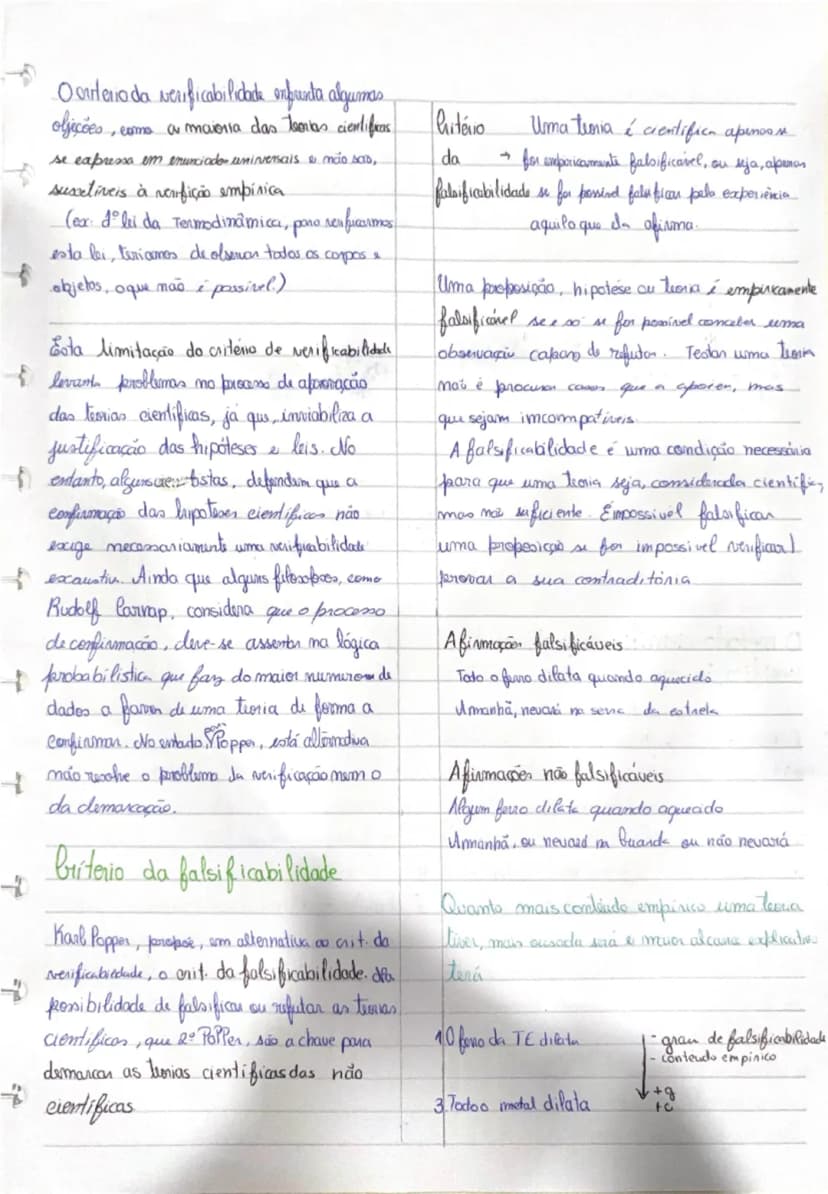 O critério da verificabilidade enfrenta algumas
objeções, como a maioria das teorias científicas
se expressa em enunciados universais e não são,
suscetíveis à verifição empírica
(ex: 1º lei da Termodinâmica, para verificarmos
esta lei, teriamos de observar todos os corpos e
objetos, o que não é possivel.)
Esta limitação do critério de verificabilidade
levanta problemas no processo de aprovação
das teorias científicas, já que, inviabiliza a
justificação das hipóteses e leis. No
entanto, alguns cientistas, defendem que a
confirmação das hipoteses cientificas não
exige necessariamente uma verificabilidade
exaustiva. Ainda que alguns filosofos, como
Rudolf Carnap, considera que o processo
de confirmação, deve-se assentar na lógica
probabilistica que faz do maior numero de
dados a favor de uma teoria de forma a
confirmar. No entado, para Popper, está alternativa
não resolve o problema da verificação nem o
da demarcação.
Críterio da falsificabilidade
Karl Popper, propôe, em alternativa ao crit. da
verificabiedade, o crit. da falsificabilidade.
possibilidade de falsificar ou refutar as teorias
científicas, que 2º Popper, são a chave para
demarcar as teorias científicas das não
científicas
Critério Uma teoria é cientifica apenas se
da → for empiricamente falsificável, ou seja, apenas
falsificabilidade se for possivel falsificar pela experiência
aquilo que ela afirma.
Uma proposição, hipotése ou teoria é empiricamente
falsificável se e só se for possivel conceber uma
observação capaz de refutar. Testar uma teoria
não é procurar casos que a apoiem, mas
que sejam imcompativeis.
A falsificabilidade é uma condição necessária
para que uma teoria seja, considerada científica,
mas não suficiente. É impossivel falsificar
uma proposição se for impossivel verificar)
provar a sua contraditória
Afirmações falsificáveis
Todo o ferro dilata quando aquecido
Amanhã, nevará na serra da estrela
Afirmações não falsificáveis
Algum ferro dilata quando aquecido
Amanhã, ou nevará na Guarda ou não nevará
Quanto mais contéudo empirico uma teoria
tiver, mais ousada será e maior alcance explicativo
terá
1. O ferro da TE dilata
- grau de falsificabilidade
- conteudo empirico
3. Todo o metal dilata
+g
+c